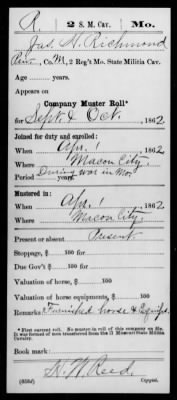 R. 2 S. M. Cav. Mo.
Jas. H. Richmond
Pvt., Co. M, 2 Reg't Mo. State Militia Cav.
Age years.
Appears on
Company Muster Roll*
for Sept. & Oct., 1862
Joined for duty and enrolled:
When Apr. 1, 1862
Where Macon City.
Period During war in Mo. years.
Mustered in:
When Apr. 1, 1862
Where Macon City.
Present or absent Present
Stoppage, $ 100 for
Due Gov't $ 100 for
Valuation of horse, $ 100
Valuation of horse equipments, $ 100
Remarks Furnished horse & Equipts.
*First current roll. No muster-in roll of this company on file.
It was formed of men transferred from the 11 Missouri State Militia
Cavalry.
Book mark:
Reed.
(358d) Copyist.